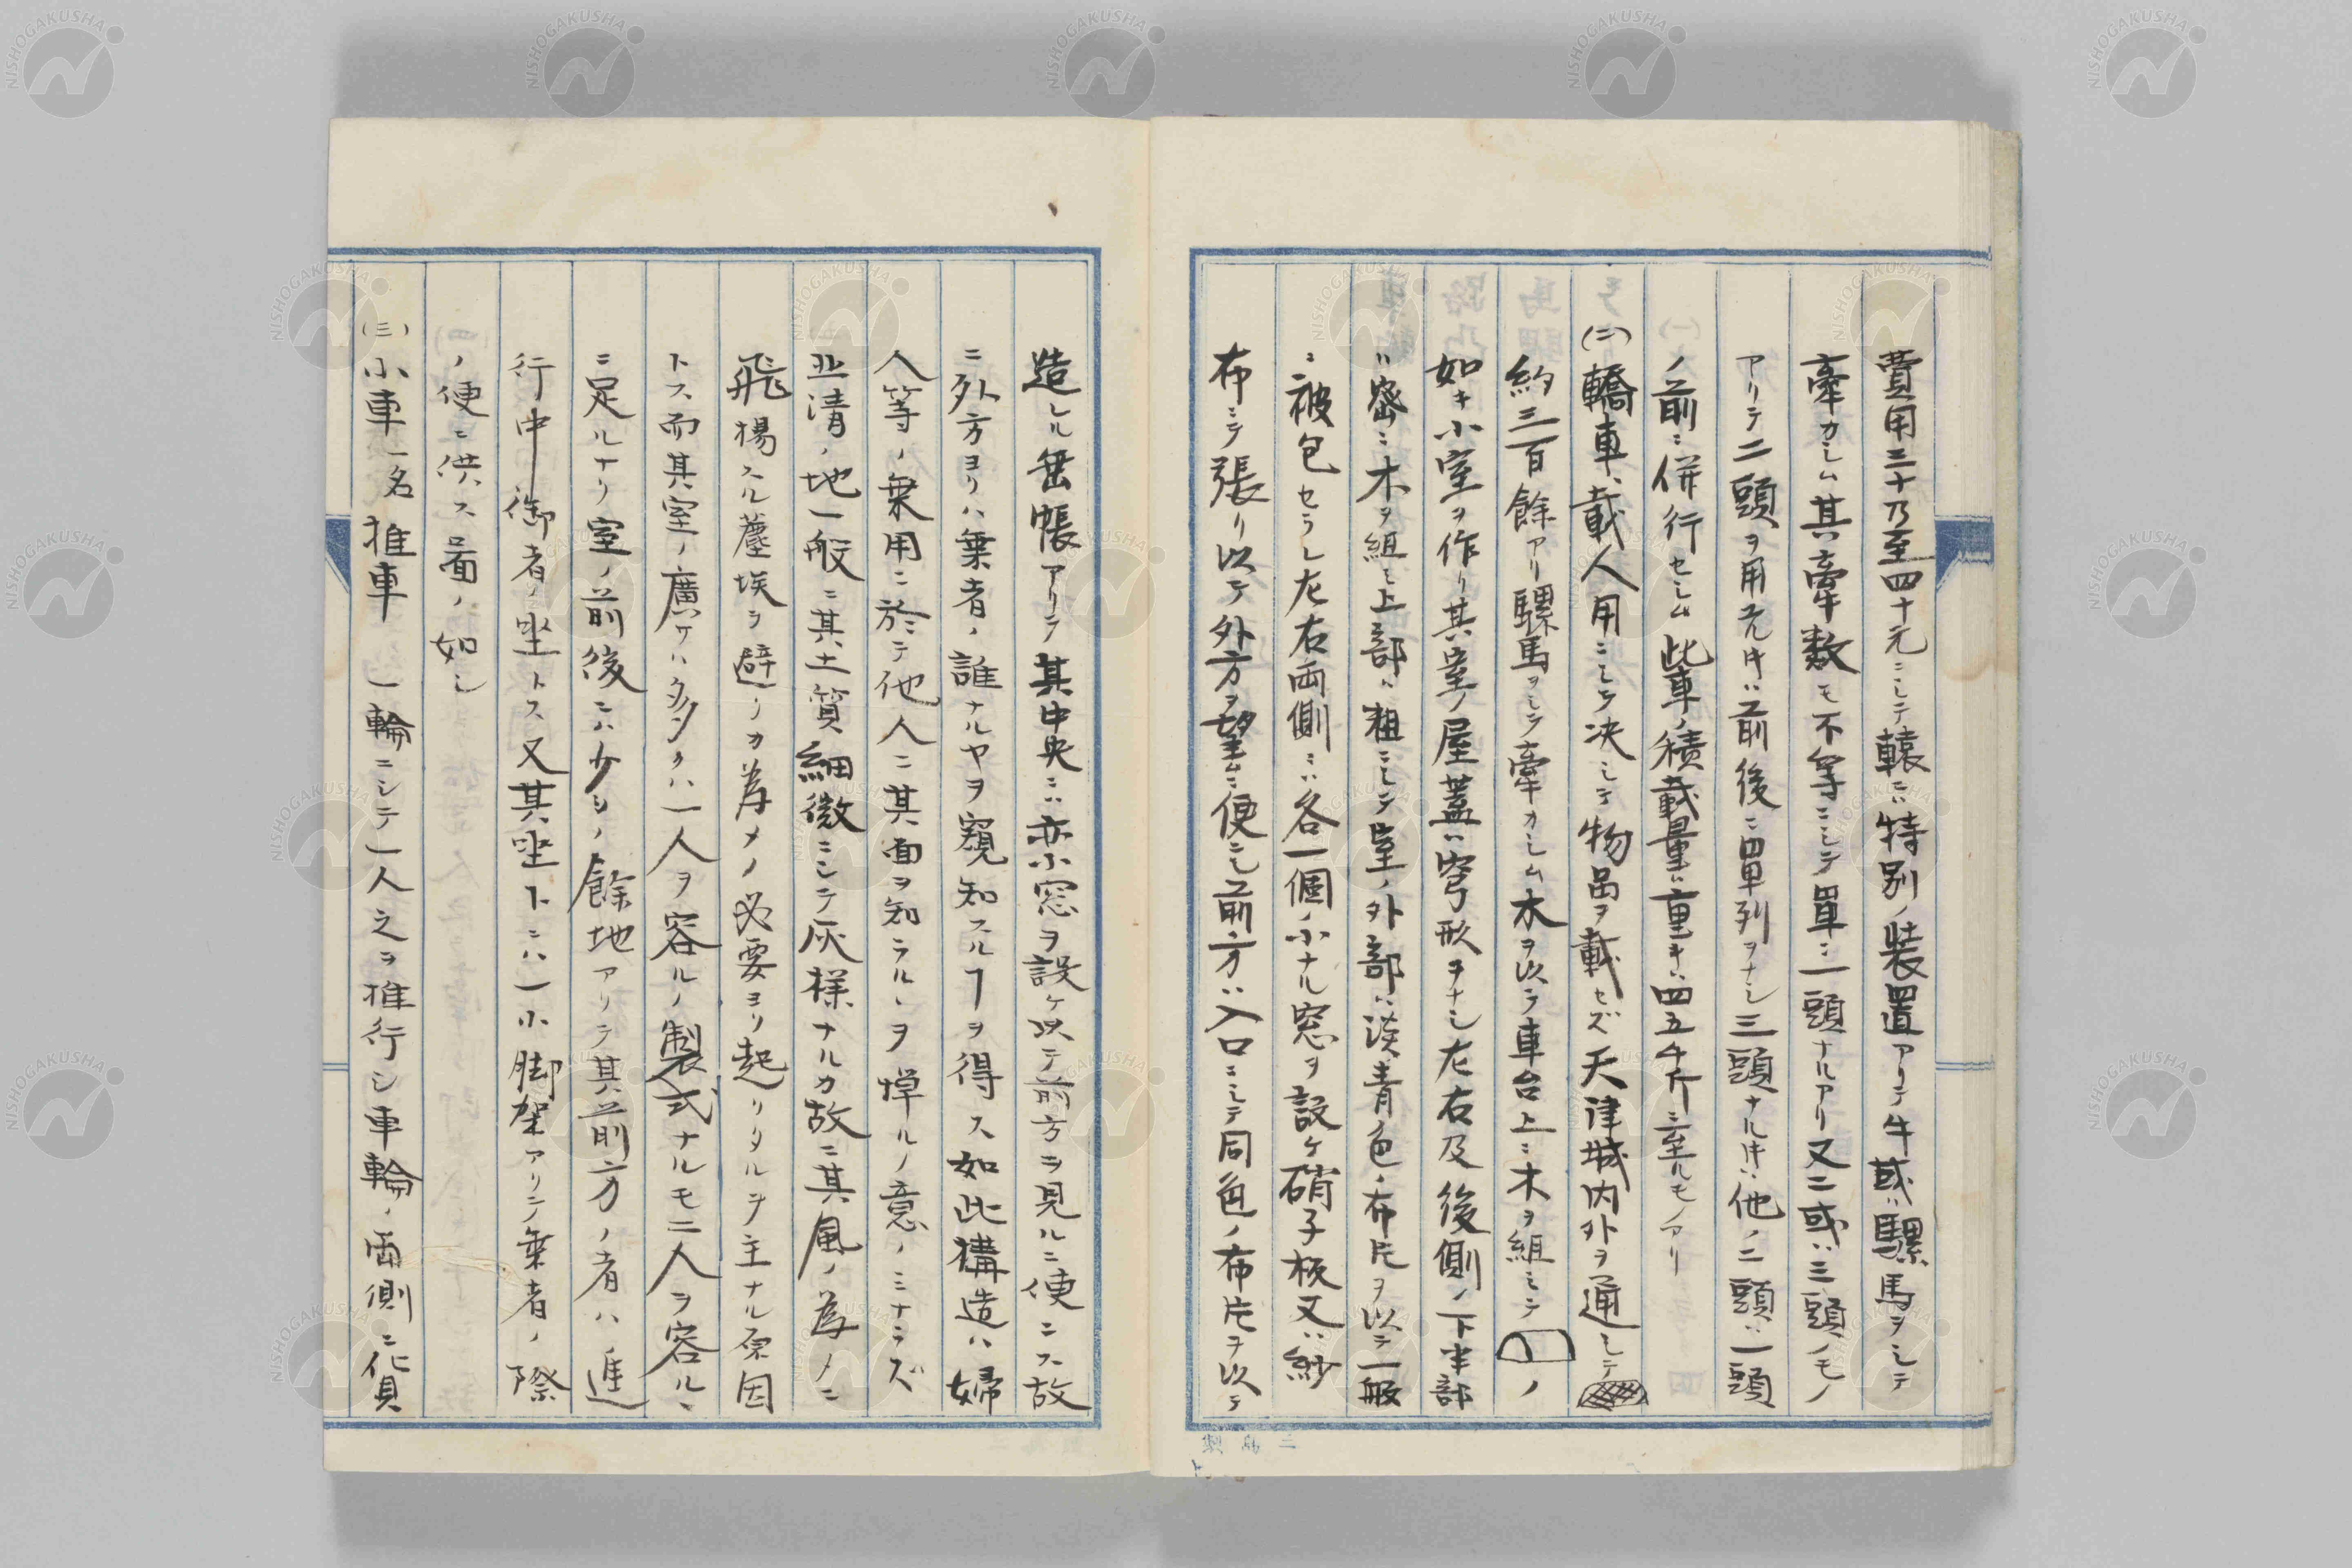 費用三十乃至四十元ニシテ轅ニハ特別ノ装置アリテ牛或ハ騾馬ヲシテ
牽カシム其牽牛数モ不等ニシテ単ニ一頭ナルアリ又二或ハ三頭ノモノ
アリテ二頭ヲ用フル片ハ前後ニ単列ヲナシ三頭ナル片ハ他ノ二頭ハ一頭
ノ前ニ併行セシム此車ノ積載量ハ重キハ四五千斤ニ至ルモノアリ
(二)轎車ハ載人用ニシテ决シテ物品ヲ載セズ天津城内外ヲ通シテ
約三百餘アリ騾馬ヲシテ牽カシム木ヲ以テ車台上ニ木ヲ組ミテ ノ
如キ小室ヲ作リ其室ノ屋蓋ハ穹形ヲナシ左右及後側ノ下半部
ハ密ニ木ヲ組ミ上部ハ粗ニシテ室ノ外部ハ淡青色ノ布片ヲ以テ一般
ニ被包セラレ左右両側ニハ各一個ノ小ナル窓ヲ設ケ硝子板又ハ紗
布ニテ張リ以テ外方ヲ望ムニ便ニシ前方ハ入口ニシテ同色ノ布片ヲ以テ
造レル垂帳アリテ其中央ニハ亦小窓ヲ設ケ以テ前方ヲ見ルニ便ニス故
ニ外方ヨリハ乗者ノ誰ナルヤヲ窺知スルヿヲ得ス如此構造ハ婦
人等ノ乗用ニ於テ他人ニ其面ヲ知ラルヽヲ憚ルノ意ノミナラズ
北清ノ地一般ニ其土質細微ニシテ灰様ナルカ故ニ其風ノ為メニ
飛楊スル塵埃ヲ避リカ為メノ必要ヨリ起リタルヲ主ナル原因
トス而其室ノ廣サハ多クハ一人ヲ容ルノ製式ナルモ二人ヲ容ルヽ
ニ足ルナリ室ノ前後ニハ少シノ餘地アリテ其前方ノ者ハ進
行中御者ノ坐トス又其坐下ニハ一小脚架アリテ乗者ノ際
ノ便ニ供ス畧面ノ如シ
(三)小車一名推車 一輪ニシテ一人之ヲ推行シ車輪ノ両側ニ貨
二島製
NISHOGAKUSHA